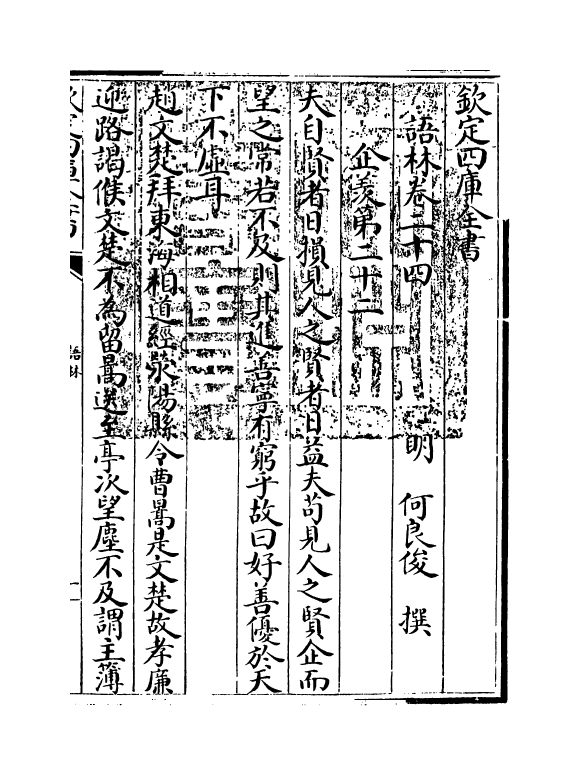 欽定四庫全書
語林卷二十四　明　何良俊　撰
企羡第二十二
夫自賢者日損見人之賢者日益夫苟見人之賢企而
望之常若不及則其進善寧有窮乎故曰好善優於天
下不虛耳
趙文楚拜東海相道經滎陽縣令曹暠是文楚故孝廉
迎路謁候文楚不為留暠送至亭次望塵不及謂主簿
語林